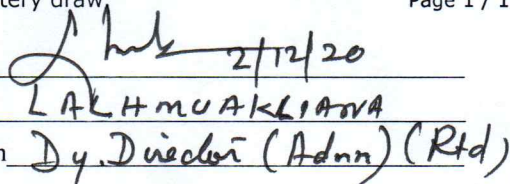 tery draw Page 1 / 1
2/12/20
LALHMUAKLIANA
n Dy. Director (Admn) (Rtd)